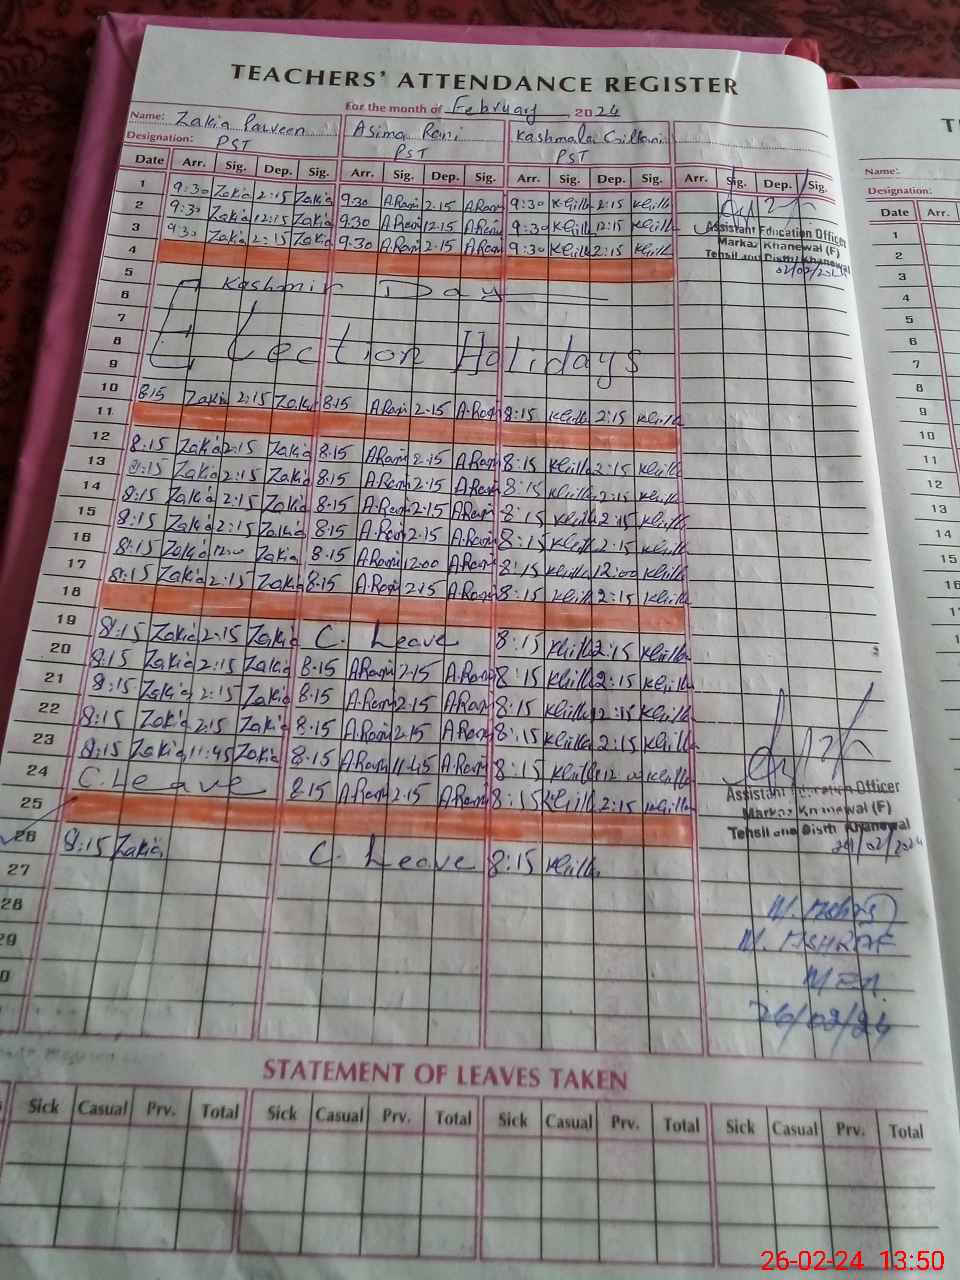 TEACHERS' ATTENDANCE REGISTER
For the month of February 2024
Name: Zakia Parveen Asima Rani Kashmala
Designation: PST PST PST
Date Arr. Sig. Dep. Sig. Arr. Sig. Dep. Sig. Arr. Sig. Dep. Sig. Arr. Sig. Dep. Sig.
1 9:30 Zakia 2:15 Zakia 9:30 A.Rani 2:15 A.Rani 9:30 2:15
2 9:30 Zakia 12:15 Zakia 9:30 A.Rani 12:15 A.Rani 9:30 12:15
3 9:30 Zakia 2:15 Zakia 9:30 A.Rani 2:15 A.Rani 9:30 2:15
Assistant Education Officer
Markaz Khanewal (F)
Tehsil and Distt: Khanewal
4
5 Kashmir Day
6
7
8 Election Holidays
9
10 8:15 Zakia 2:15 Zakia 8:15 A.Rani 2:15 A.Rani 8:15 2:15
11
12 8:15 Zakia 2:15 Zakia 8:15 A.Rani 2:15 A.Rani 8:15 2:15
13 8:15 Zakia 2:15 Zakia 8:15 A.Rani 2:15 A.Rani 8:15 2:15
14 8:15 Zakia 2:15 Zakia 8:15 A.Rani 2:15 A.Rani 8:15 2:15
15 8:15 Zakia 2:15 Zakia 8:15 A.Rani 2:15 A.Rani 8:15 2:15
16 8:15 Zakia 12:00 Zakia 8:15 A.Rani 12:00 A.Rani 8:15 12:00
17 8:15 Zakia 2:15 Zakia 8:15 A.Rani 2:15 A.Rani 8:15 2:15
18
19 8:15 Zakia 2:15 Zakia C. Leave 8:15 2:15
20 8:15 Zakia 2:15 Zakia 8:15 A.Rani 2:15 A.Rani 8:15 2:15
21 8:15 Zakia 2:15 Zakia 8:15 A.Rani 2:15 A.Rani 8:15 2:15
22 8:15 Zakia 2:15 Zakia 8:15 A.Rani 2:15 A.Rani 8:15 2:15
23 8:15 Zakia 11:45 Zakia 8:15 A.Rani 11:45 A.Rani 8:15
24 C. Leave 8:15 A.Rani 2:15 A.Rani 8:15 2:15
Assistant Education Officer
Markaz Khanewal (F)
Tehsil and Distt: Khanewal
25
26 8:15 Zakia C. Leave 8:15
27
28
M. ASHRAF
29
0
26/02/24
STATEMENT OF LEAVES TAKEN
Sick Casual Prv. Total Sick Casual Prv. Total Sick Casual Prv. Total Sick Casual Prv. Total
Name:
Designation:
Date Arr.
1
2
3
4
5
6
7
8
9
10
11
12
13
14
15
26-02-24 13:50